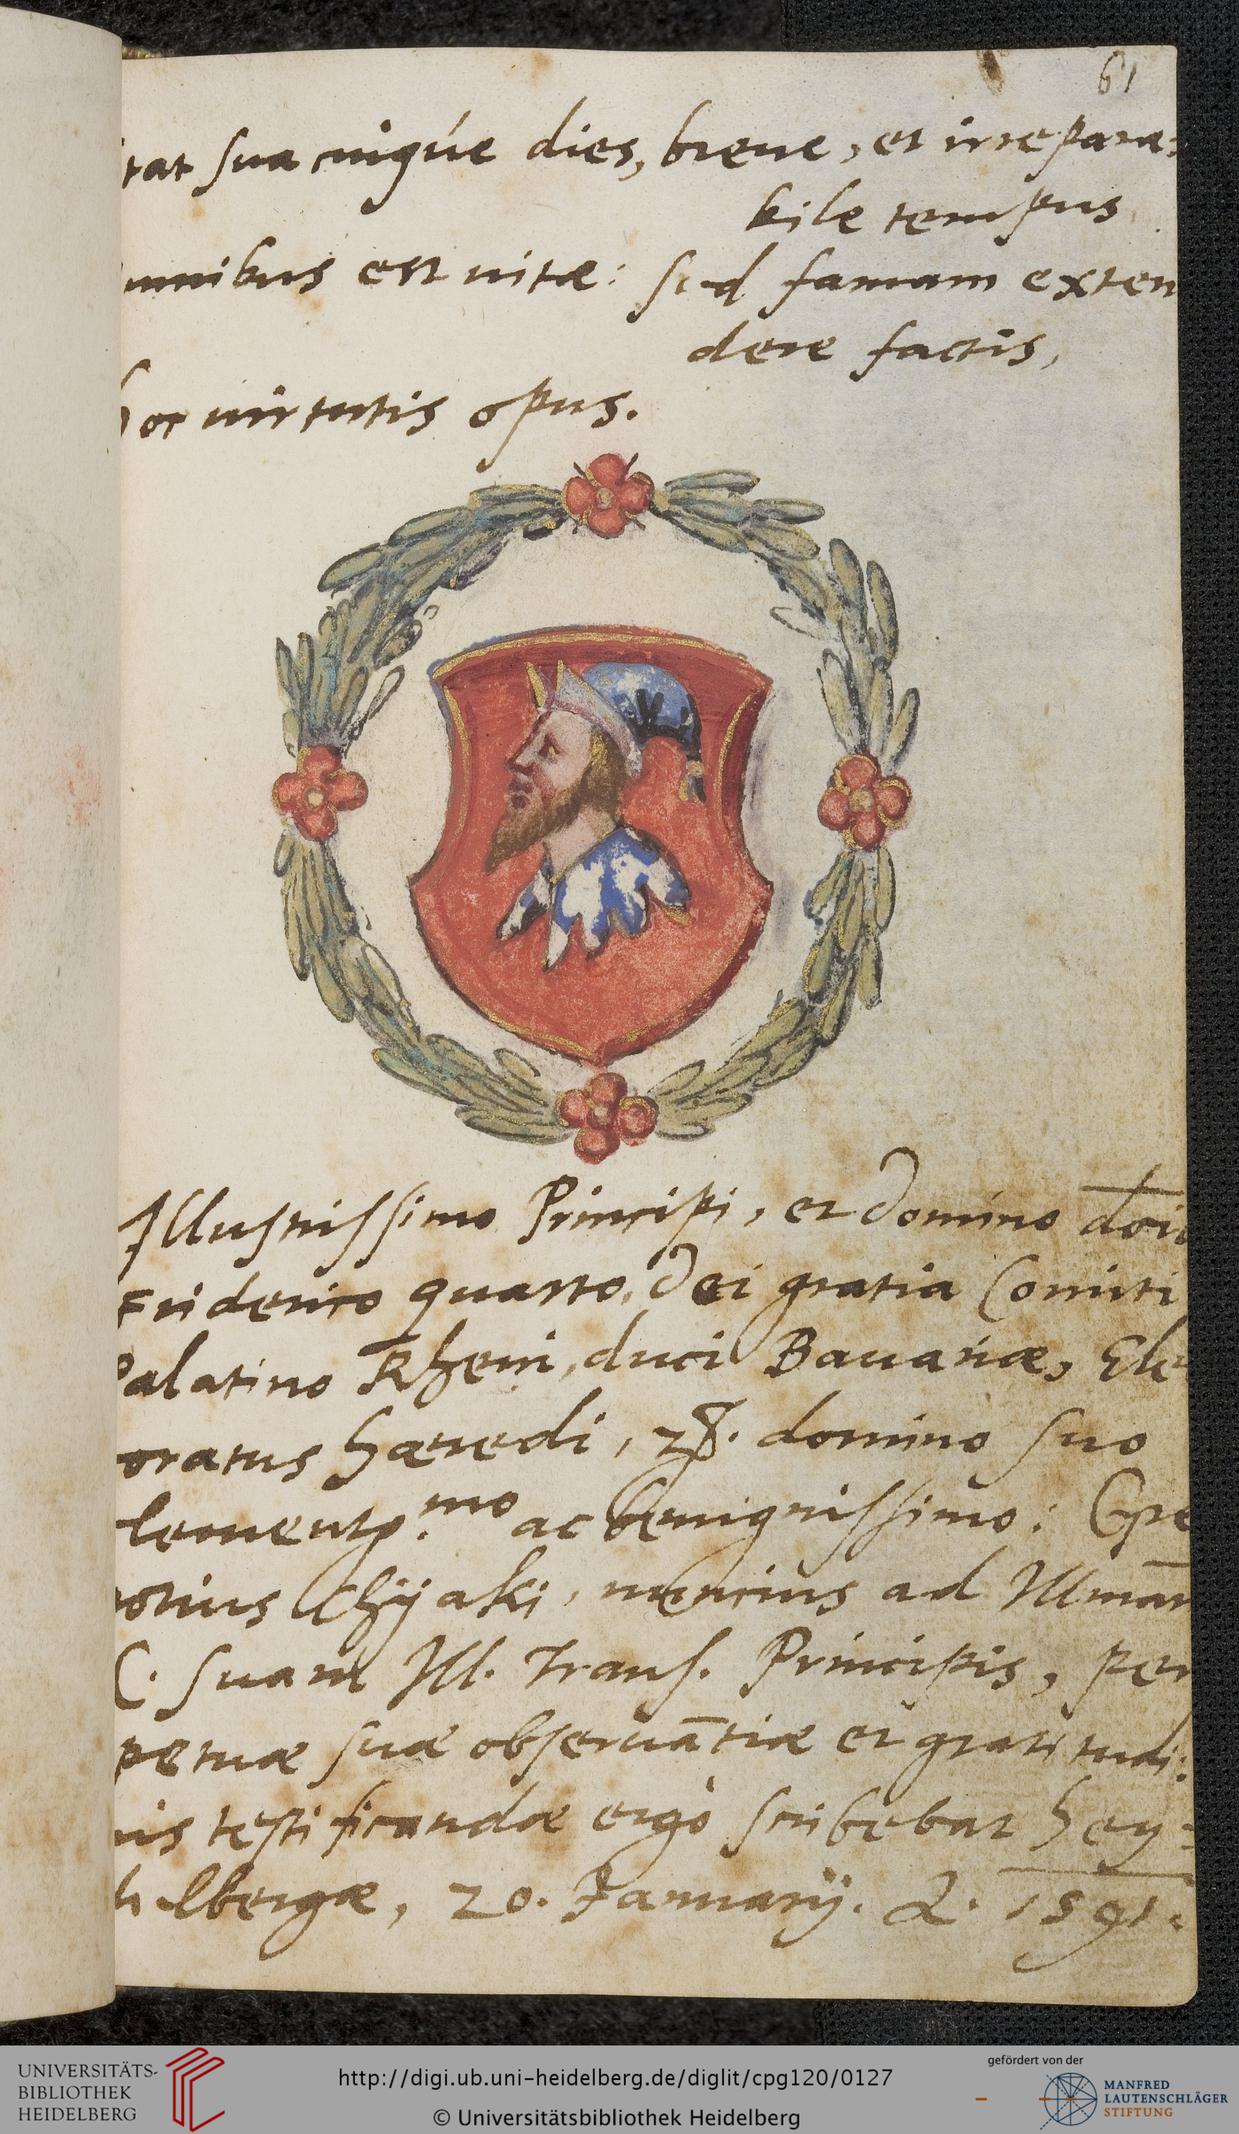 61
tat sua cuiqúe dies, breue, et irrepara:
bile tempus
omnibus est uitæ: sed famam exten
dere factis,
hoc uirtutis opus.
Illustrissimo Principi, et domino
Friderico quarto, dei gratia Comiti
Palatino Rheni, duci Bauariæ, Ele
oratus hæredi, domino suo
ac benignissimo:
nuncius ad Illmām
C. suam Ill. Trans. Principis, per
petuæ suæ obseruātiæ et gratitudi:
nis testificandæ ergò scribebat hey:
lbergæ, 20. Januarÿ. A. 1591.
UNIVERSITÄTS-
BIBLIOTHEK
HEIDELBERG
http://digi.ub.uni-heidelberg.de/diglit/cpg120/0127
© Universitätsbibliothek Heidelberg
gefördert von der
MANFRED
LAUTENSCHLÄGER
STIFTUNG